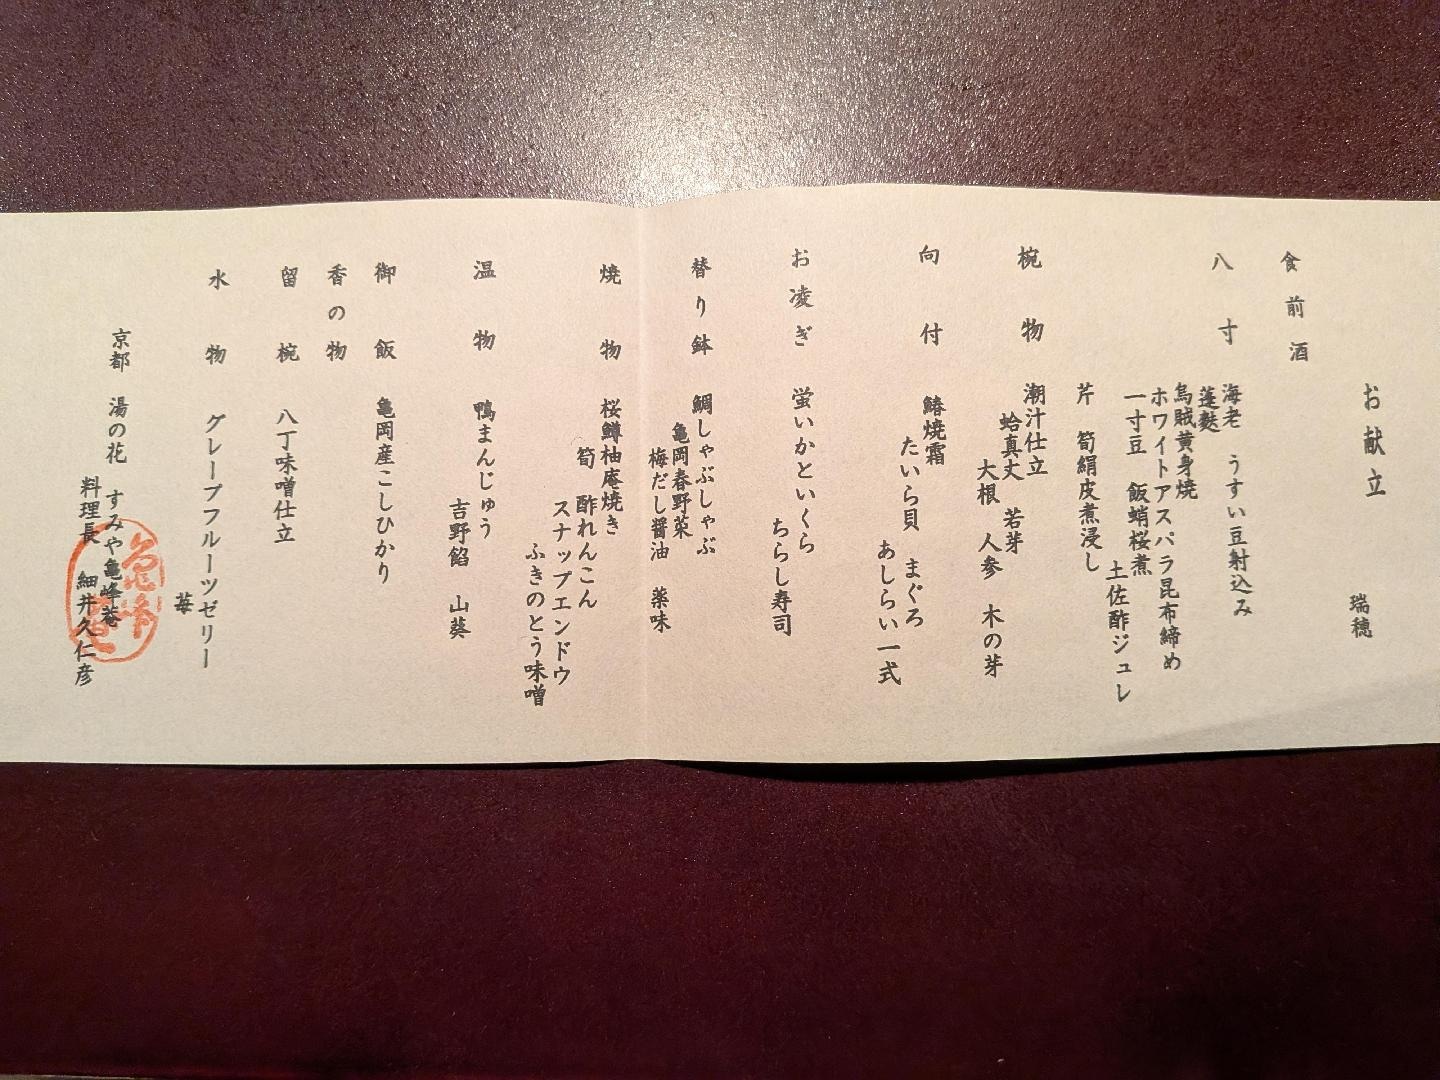 お献立
瑞穂
食前酒
八寸
海老　うすい豆射込み
蓬麩
烏賊黄身焼
ホワイトアスパラ昆布締め
一寸豆　飯蛸桜煮
土佐酢ジュレ
芹　筍絹皮煮浸し
椀物
潮汁仕立
蛤真丈　若芽
大根　人参　木の芽
向付
鰆焼霜
たいら貝　まぐろ
あしらい一式
お凌ぎ
蛍いかといくら
ちらし寿司
替り鉢
鯛しゃぶしゃぶ
亀岡春野菜
梅だし醤油　薬味
焼物
桜鱒柚庵焼き
筍　酢れんこん
スナップエンドウ
ふきのとう味噌
温物
鴨まんじゅう
吉野餡　山葵
御飯
亀岡産こしひかり
香の物
留椀
八丁味噌仕立
水物
グレープフルーツゼリー
苺
京都　湯の花　すみや亀峰菴
料理長　細井久仁彦